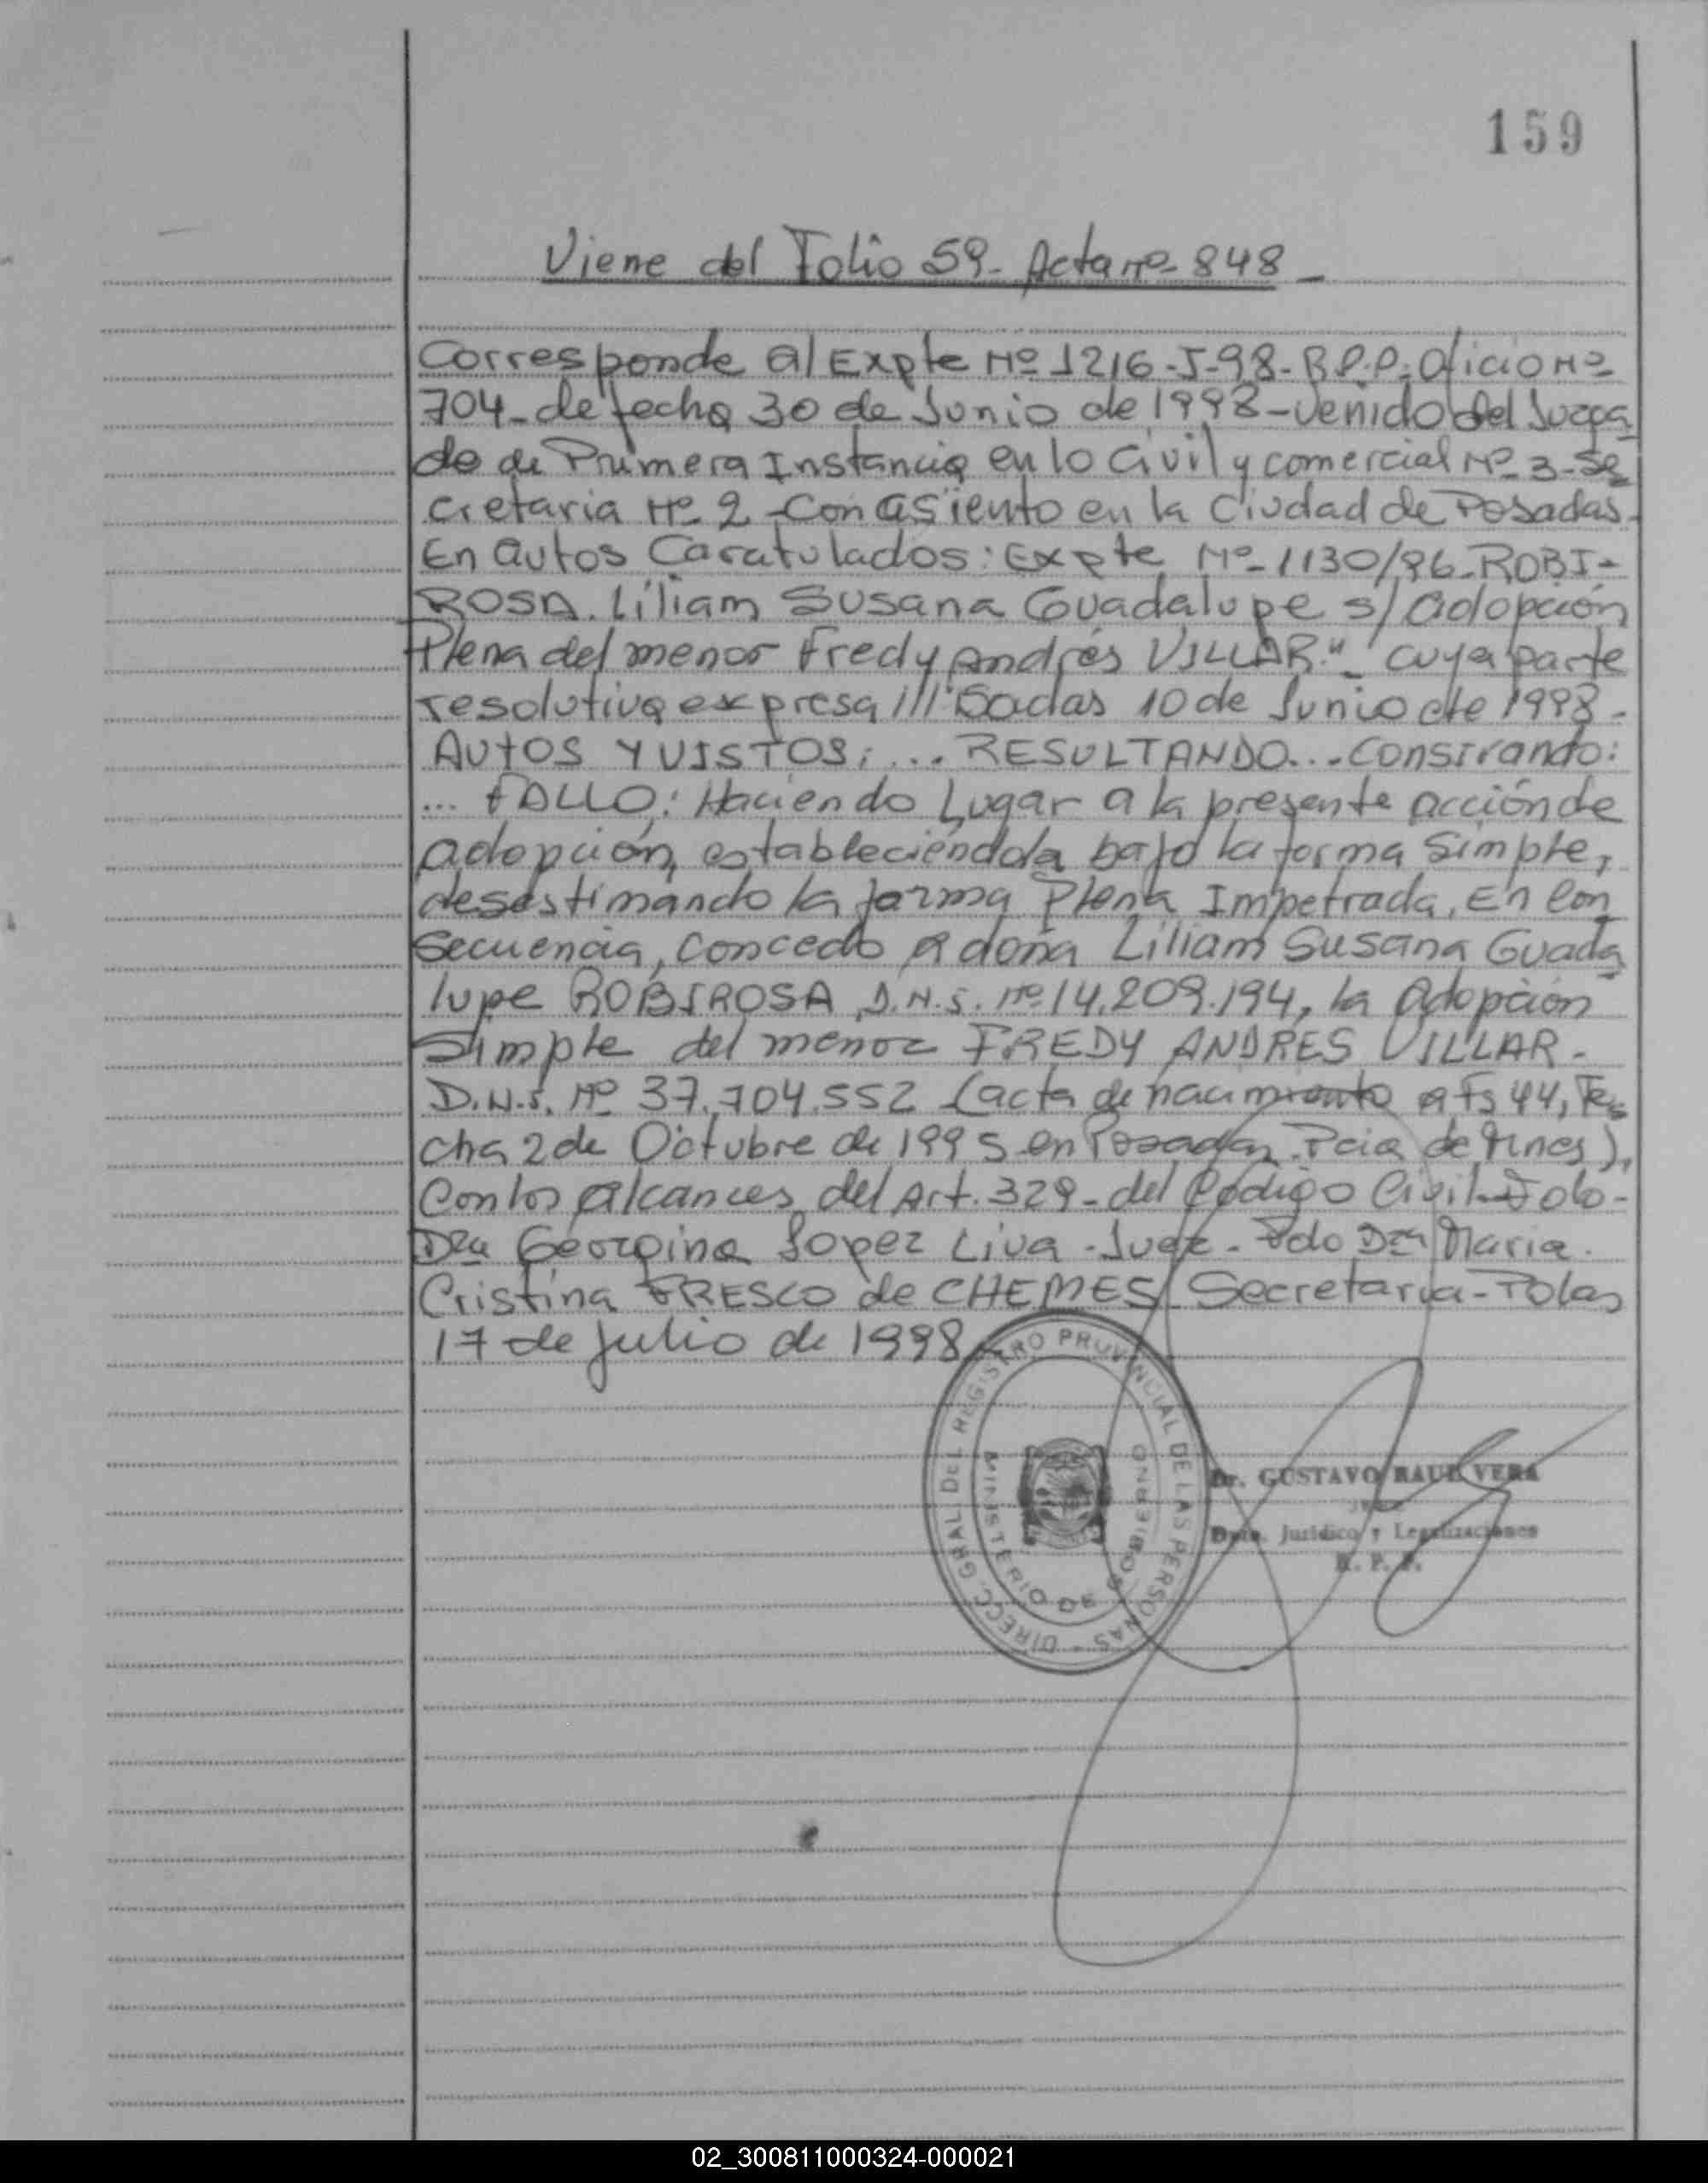 159
Viene del Folio 59- Acta nº- 848-
Corresponde al Expte Nº 1216-J-98-R.P.P. Oficio Nº
704- de fecha 30 de Junio de 1998- venido del Juzga
do de Primera Instancia en lo Civil y comercial Nº 3- Se
cretaria Nº 2 - Con asiento en la Ciudad de Posadas.
En autos Caratulados: Expte Nº 1130/96- ROBI-
ROSA. Liliam Susana Guadalupe s/ adopción
Plena del menor Fredy Andrés VILLAR"- cuya parte
resolutiva expresa ///sadas 10 de Junio de 1998-
AUTOS Y VISTOS: ... RESULTANDO... Consirando:
... FALLO: Haciendo Lugar a la presente acción de
adopción, estableciéndola bajo la forma Simple,
desestimando la forma Plena Impetrada, En Con
secuencia, concedo a doña Liliam Susana Guada
lupe ROBIROSA, D.N.I. nº 14.209.194, la Adopción
Simple del menor FREDY ANDRES VILLAR-
D.N.I. Nº 37.704.552 (acta de nacimiento a fs 44, Fe
cha 2 de Octubre de 1995 en Posadas. Pcia de Mnes),
Con los alcances del Art. 329- del Código Civil- Fdo-
Dra Georgina Lopez Liva - Juez- Fdo Dra Maria
Cristina FRESCO de CHEMES- Secretaria- Pdas
17 de Julio de 1998-
DIRECC. GRAL. DEL REGISTRO PROVINCIAL DE LAS PERSONAS -
MINISTERIO DE GOBIERNO
Dr. GUSTAVO RAUL VERA
Dpto. Jurídico y Legalizaciones
R. P. P.
02_300811000324-000021